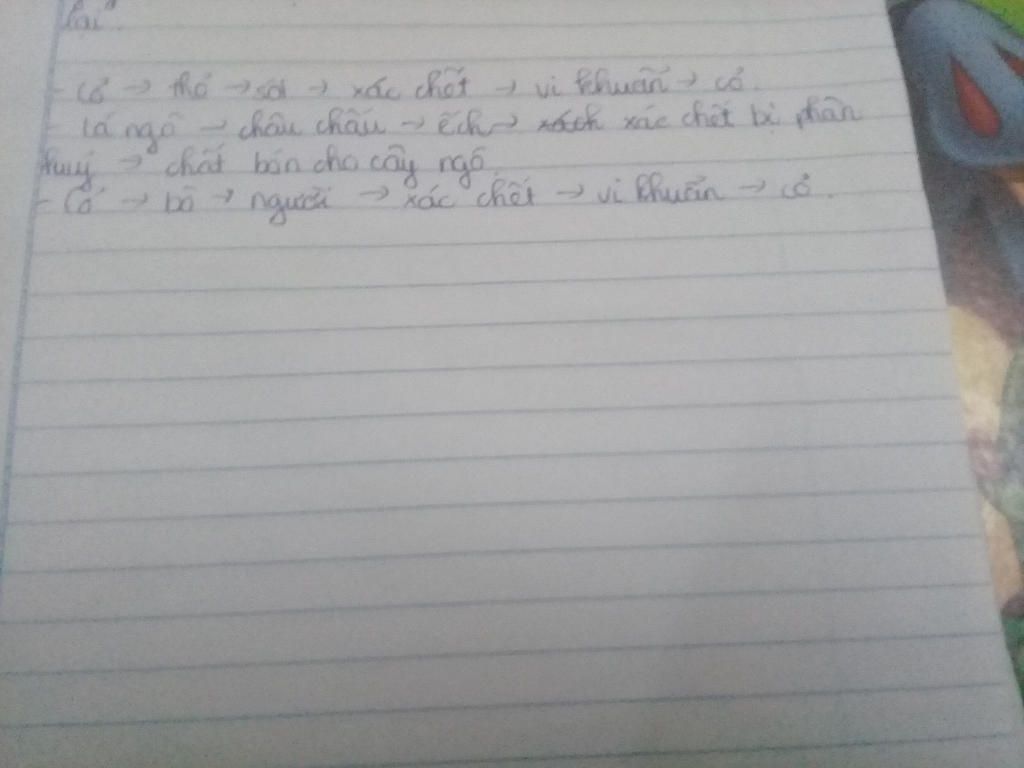 lại.
- Cỏ → thỏ → sói → xác chết → vi khuẩn → cỏ.
- Lá ngô → châu chấu → ếch → xách xác chết bị phân
huỷ → chất bón cho cây ngô.
- Cỏ → bò → người → xác chết → vi khuẩn → cỏ.